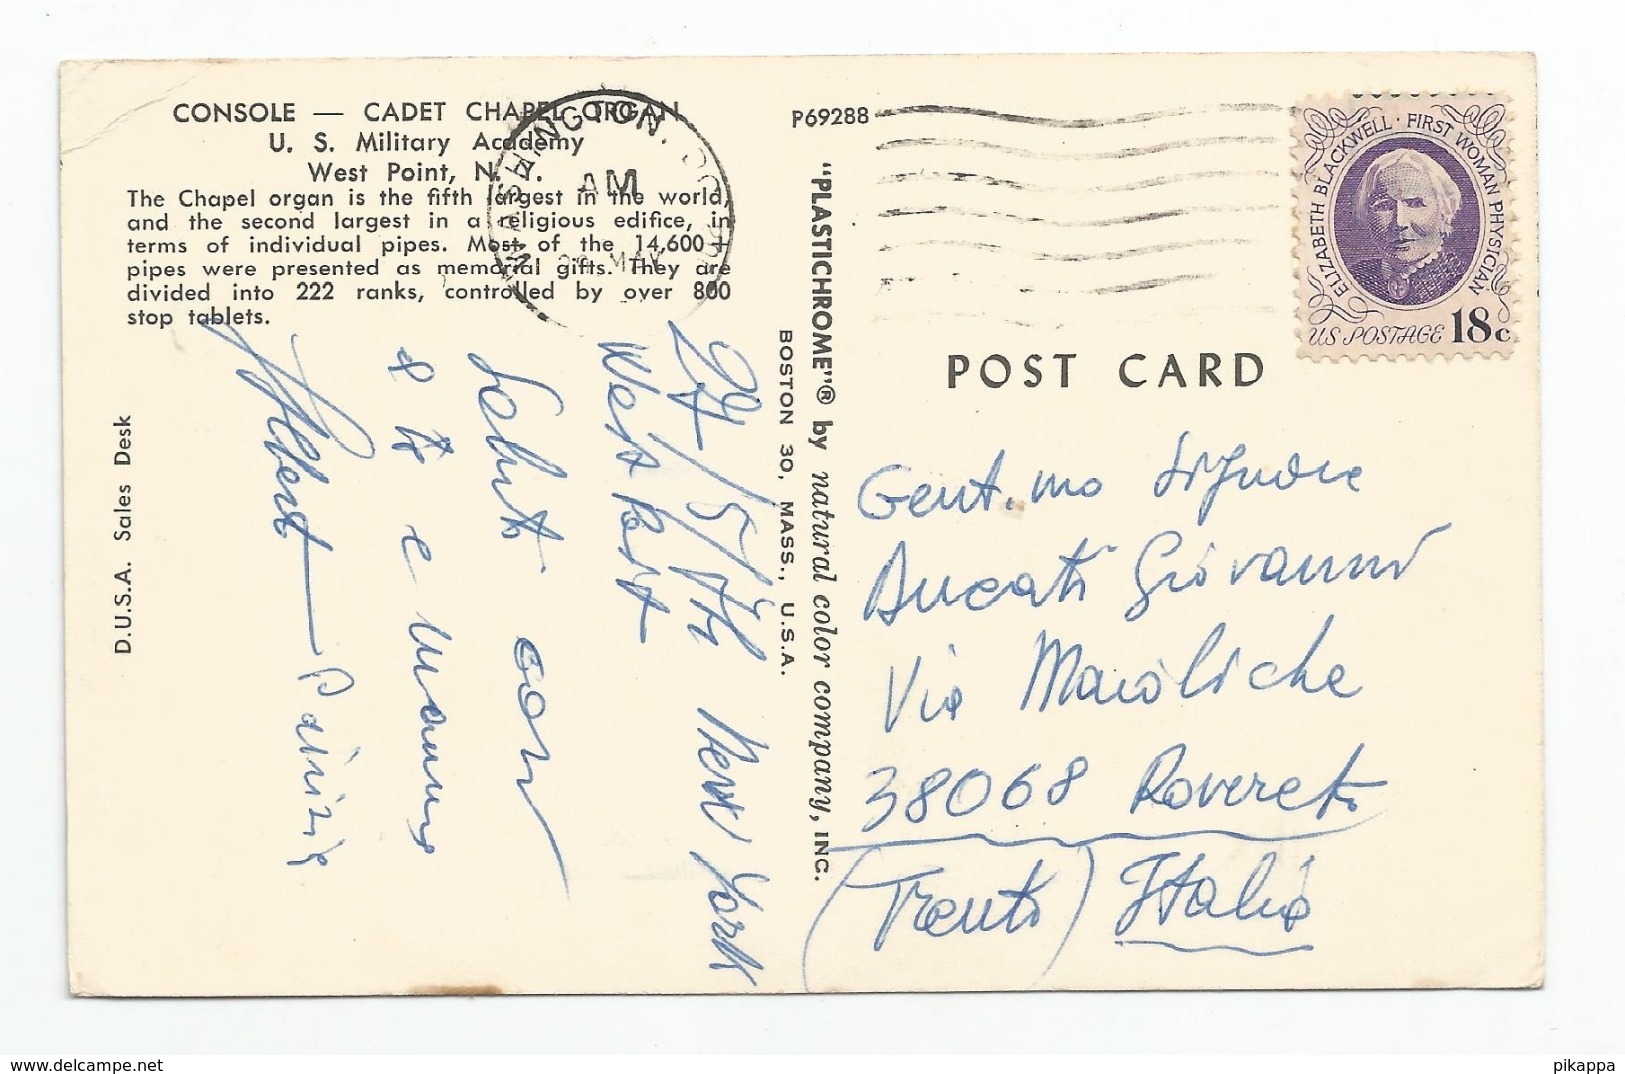 CONSOLE — CADET CHAPEL ORGAN
U. S. Military Academy
West Point, N. Y.
The Chapel organ is the fifth largest in the world,
and the second largest in a religious edifice, in
terms of individual pipes. Most of the 14,600+
pipes were presented as memorial gifts. They are
divided into 222 ranks, controlled by over 800
stop tablets.
WASHINGTON, DC
AM
MAY
P69288
D.U.S.A. Sales Desk
"PLASTICHROME"® by natural color company, INC.
BOSTON 30, MASS., U.S.A.
ELIZABETH BLACKWELL · FIRST WOMAN PHYSICIAN
US POSTAGE 18c
POST CARD
New York
West Point
Saluti con
a te e mamma
Albert Patrizia
Gent.mo Signore
Ducati Giovanni
Via Maioliche
38068 Rovereto
(Trento) Italia
pikappa